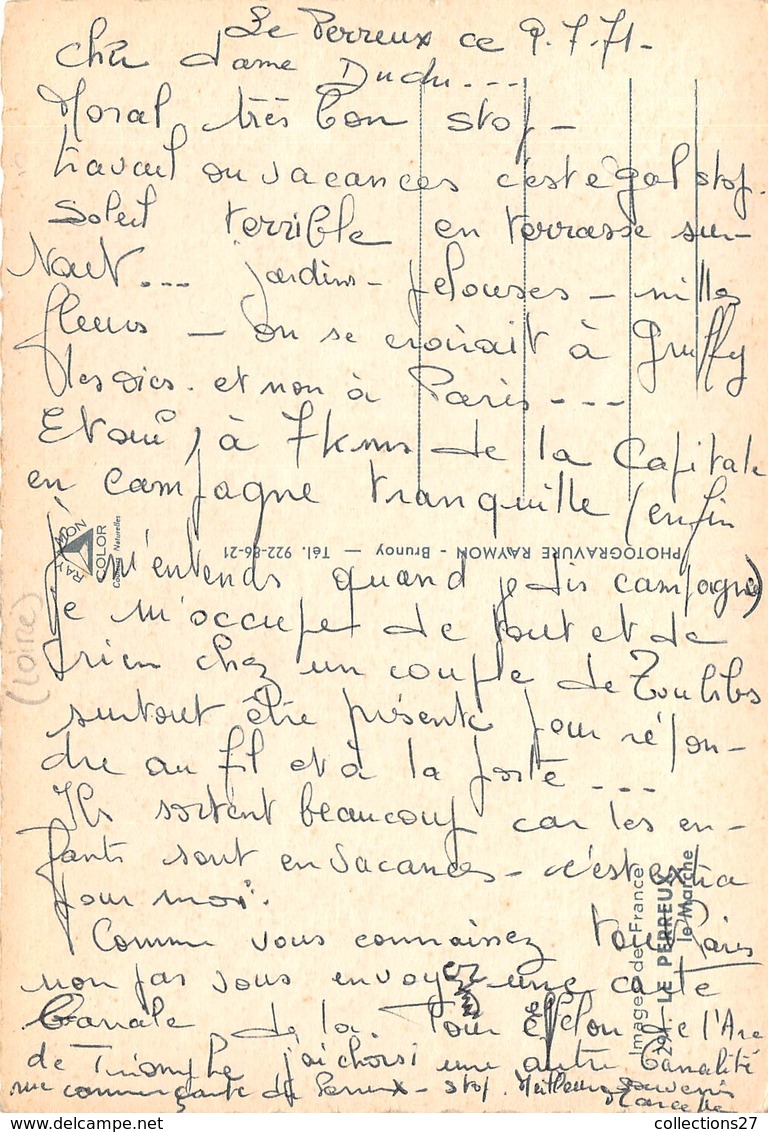 Le Perreux ce 9.7.71-
Chère dame Dudu...
Moral très bon stop -
travail ou vacances c'est égal stop.
Soleil terrible en terrasse sur-
tout... jardins - pelouses - milles
fleurs - on se croirait à Gruffy
les oies. et non à Paris ---
Et oui, à 7 kms de la Capitale
en campagne tranquille (enfin
j'm'entends quand je dis campagne)
Je m'occupe de tout et de
rien chez un couple de Toubibs
surtout être présente pour répon-
dre au fil et à la porte ---
Ils sortent beaucoup car les en-
fants sont en vacances - c'est extra
pour moi.
Comme vous connaissez tout Paris
non pas vous envoyez une carte
banale de la Tour Eiffel ou de l'Arc
de Triomphe j'ai choisi une autre banalité
rue commerçante du Perreux - stop. Meilleurs souvenirs
Marcelle
RAYMON
COLOR
Couleurs Naturelles
PHOTOGRAVURE RAYMON - Brunoy — Tél. 922-86-21
(Loire)
Images de France
291 - LE PERREUX
le Marché
collections27